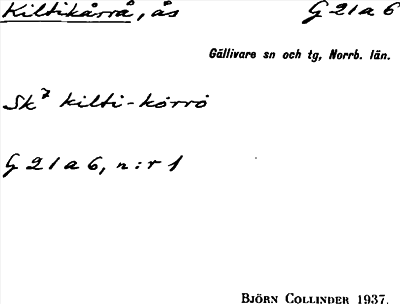 Kiltikårrå, ås G 21 a 6
Gällivare sn och tg, Norrb. län.
Sk⁷ kilti-kårrå
G 21 a 6, n:r 1
BJÖRN COLLINDER 1937.